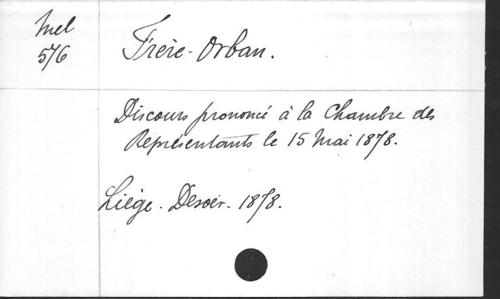 Mel
576
Frère-Orban.
Discours prononcé à la Chambre des
Représentants le 15 Mai 1878.
Liège. Desoer. 1878.